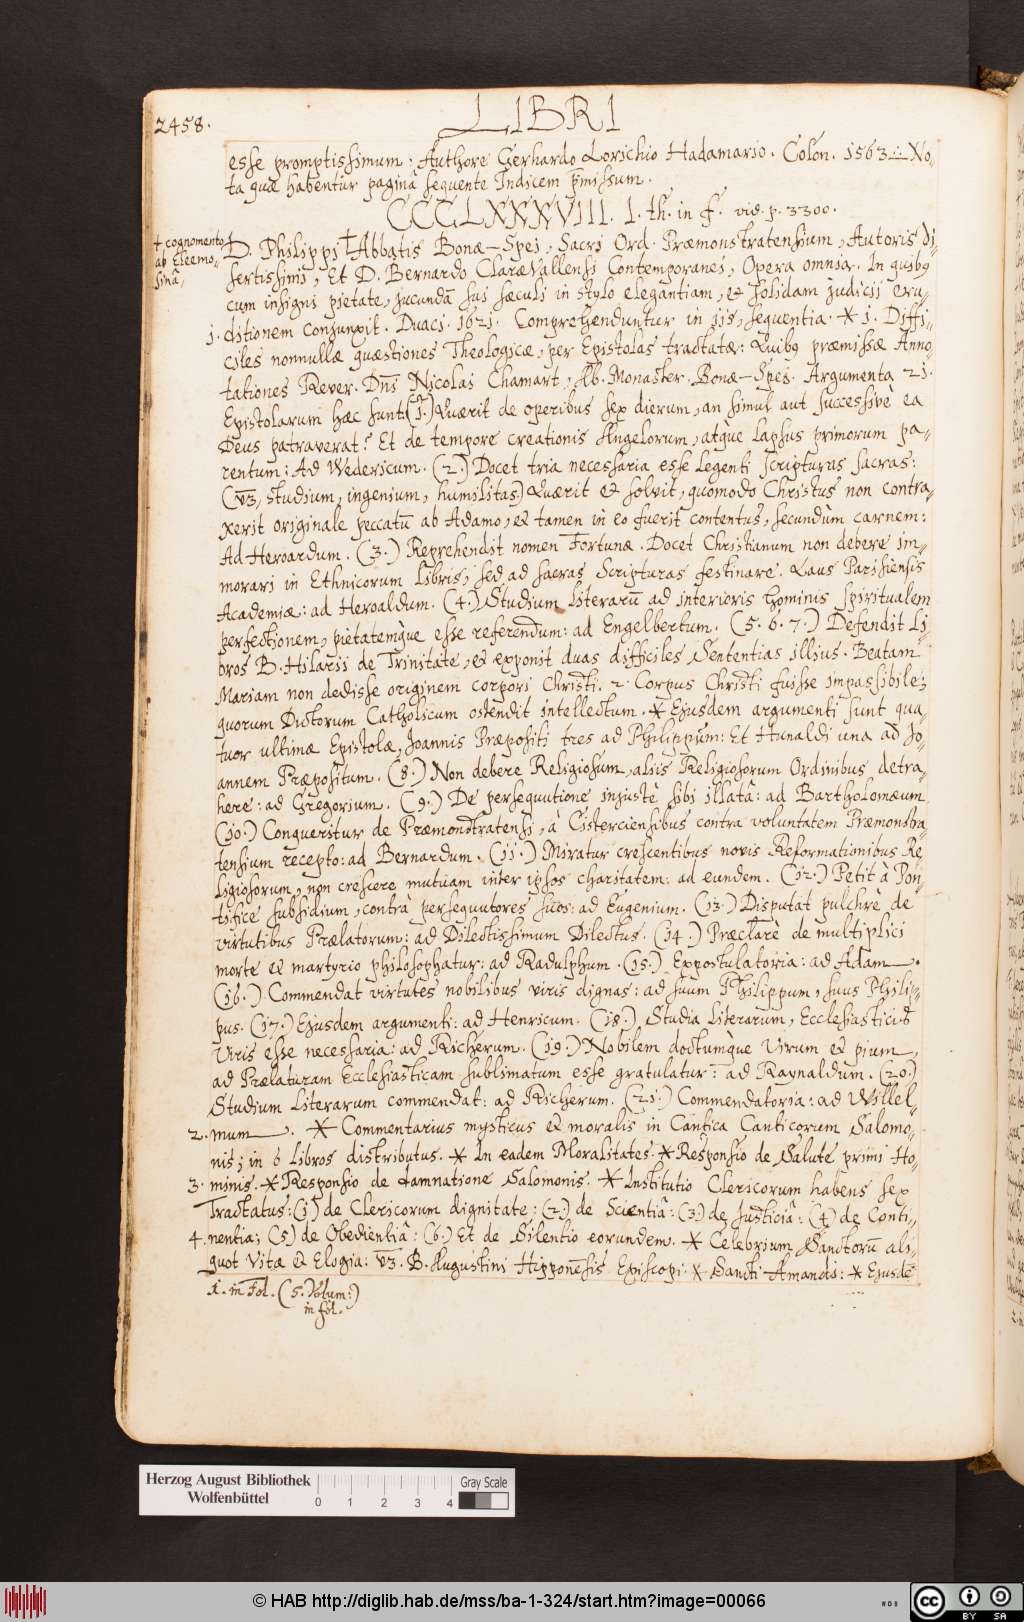 2458.
LIBRI
esse promptissimum: Authore Gerhardo Lorichio Hadamario. Colon. 1563. No,
ta quæ habentur paginâ sequente Indicem p̄missum.
CCCLXXXVIII. 1. th. in f. vid. p. 3300.
† cognomento
ab Eleemo,
sinâ,
D. Philippi † Abbatis Bonæ-Spei, Sacri Ord. Præmonstratensium, Autoris di,
sertissimi, Et D. Bernardo ClaræVallensi Contemporanei, Opera omnia. In quibꝰ
cum insigni pietate, jucundā sui sæculi in stylo elegantiam, et solidam judicij eru,
1. ditionem conjunxit. Duaci. 1621. Comprehenduntur in ijs, sequentia. * 1. Diffi,
ciles nonnullæ quæstiones Theologicæ, per Epistolas tractatæ: Quibꝰ præmissæ Anno,
tationes Rever. Dn̄i Nicolai Chamart, Ab. Monaster. Bonæ-Spei. Argumenta 21.
Epistolarum hæc sunt: (1.) Quærit de operibus sex dierum, an simul aut successivè ea
Deus patraverat? Et de tempore creationis Angelorum, atqùe lapsus primorum pa,
rentum: Ad Wedericum. (2.) Docet tria necessaria esse legenti scripturas sacras:
(vz, studium, ingenium, humilitas.) Quærit et solvit, quomodo Christus non contra,
xerit originale peccatū ab Adamo, et tamen in eo fuerit contentus, secundùm carnem:
Ad Heroardum. (3.) Reprehendit nomen Fortunæ. Docet Christianum non debere im,
morari in Ethnicorum Libris, sed ad sacras Scripturas festinare. Laus Parisiensis
Academiæ: ad Heroaldum. (4.) Studium Literarū ad interioris hominis spiritualem
perfectionem, pietatemqùe esse referendum: ad Engelbertum. (5. 6. 7.) Defendit Li,
bros B. Hilarii de Trinitate, et exponit duas difficiles Sententias illius. Beatam
Mariam non dedisse originem corpori Christi. 2. Corpus Christi fuisse impassibile;
quorum Dictorum Catholicum ostendit intellectum. * Ejusdem argumenti sunt qua,
tuor ultimæ Epistolæ, Joannis Præpositi tres ad Philippum: Et Hunaldi una ad Jo,
annem Præpositum. (8.) Non debere Religiosum, aliis Religiosorum Ordinibus detra,
here: ad Gregorium. (9.) De persequutione injustè sibi illatâ: ad Bartholomæum
(10.) Conqueritur de Præmonstratensi, à Cisterciensibus contra voluntatem Præmonstra,
tensium recepto: ad Bernardum. (11.) Miratur crescentibus novis Reformationibus Re,
ligiosorum, non crescere mutuam inter ipsos charitatem: ad eundem. (12.) Petit à Pon,
tifice subsidium, contrà persequutores suos: ad Eugenium. (13.) Disputat pulchrè de
virtutibus Prælatorum: ad Dilectissimum Dilectus. (14.) Præclarè de multiplici
morte et martyrio philosophatur: ad Radulphum. (15.) Expostulatoria: ad Adam.
(16.) Commendat virtutes nobilibus viris dignas: ad suum Philippum, suus Phili,
pus. (17.) Ejusdem argumenti: ad Henricum. (18.) Studia Literarum, Ecclesiasticis
Viris esse necessaria: ad Richerum. (19.) Nobilem doctumqùe Virum et pium,
ad Prælaturam Ecclesiasticam sublimatum esse gratulatur: ad Raynaldum. (20.)
Studium Literarum commendat: ad Richerum. (21.) Commendatoria: ad Willel,
2. mum. * Commentarius mysticus et moralis in Cantica Canticorum Salomo,
nis; in 6 Libros distributus. * In eadem Moralitates. * Responsio de Salute primi Ho,
3. minis. * Responsio de damnatione Salomonis. * Institutio Clericorum habens sex
Tractatus: (1) de Clericorum dignitate: (2.) de Scientiâ: (3.) de Justiciâ: (4) de Conti,
4. nentia; (5) de Obedientiâ: (6.) Et de Silentio eorundem. * Celebrium Sanctorū ali,
quot Vitæ et Elogia: vz. B. Augustini Hipponēsis Episcopi. * Sancti Amandi: * Ejusdē
1. in Fol. (5. Volum:)
in fol.
Herzog August Bibliothek
Wolfenbüttel
0 1 2 3 4
Gray Scale
© HAB http://diglib.hab.de/mss/ba-1-324/start.htm?image=00066
cc BY SA